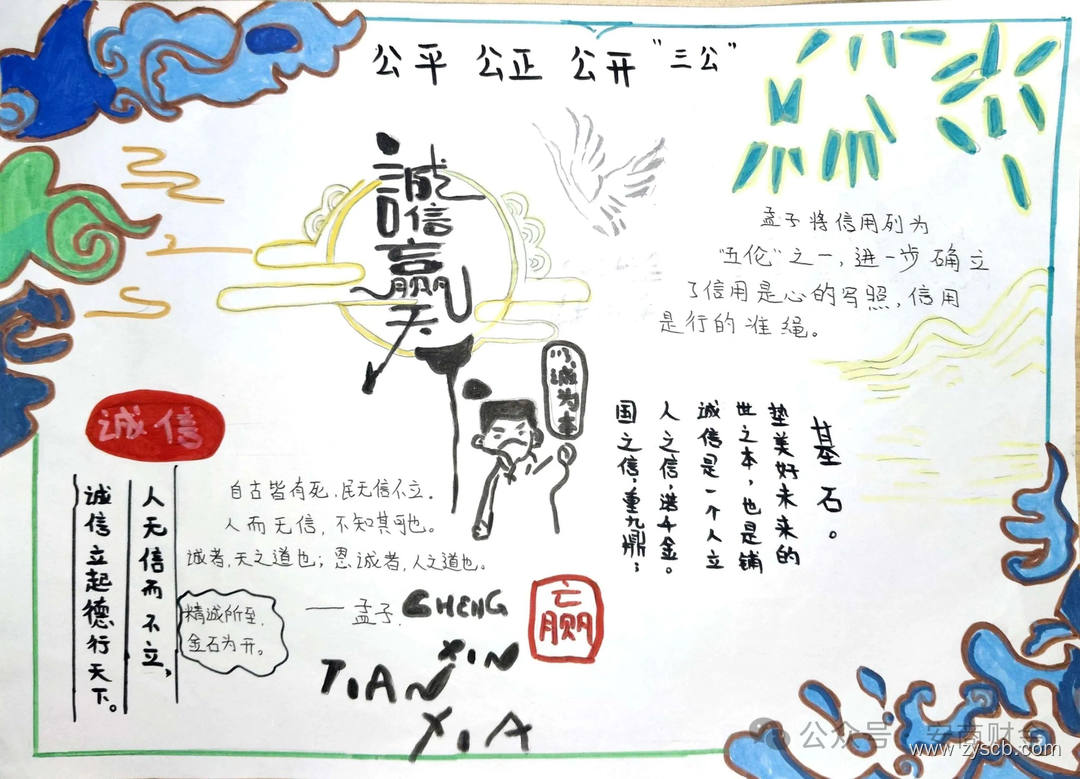 公平 公正 公开 "三公"
誠信赢天
孟子将信用列为
"五伦"之一,进一步确立
了信用是心的写照,信用
是行的准绳。
以诚为本
基石。
垫美好未来的
世之本,也是铺
诚信是一个人立
人之信,进千金。
国之信,重九鼎;
诚信
人无信而不立,
诚信立起德行天下。
自古皆有死,民无信不立.
人而无信,不知其可也。
诚者,天之道也;恩诚者,人之道也。
——孟子.
精诚所至,
金石为开。
CHENG
XIN
TIAN
XIA
赢
公众号
安商财会
www.zyscb.com